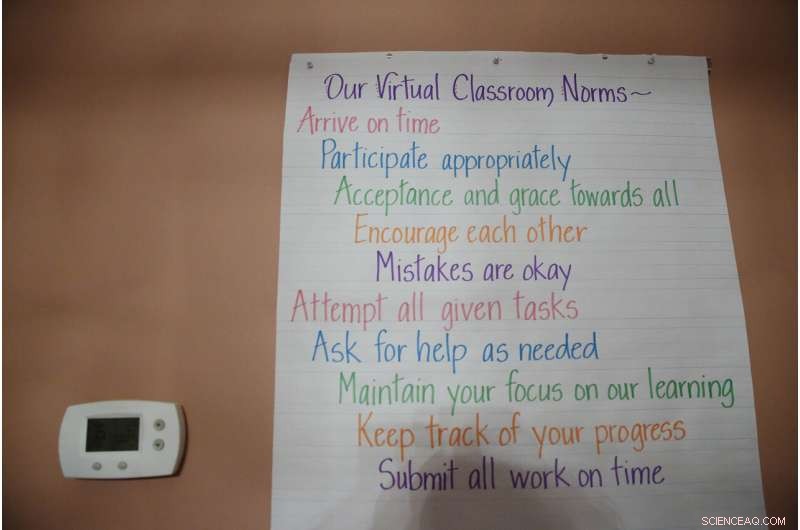 Our Virtual Classroom Norms~
Arrive on time
Participate appropriately
Acceptance and grace towards all
Encourage each other
Mistakes are okay
Attempt all given tasks
Ask for help as needed
Maintain your focus on our learning
Keep track of your progress
Submit all work on time
SCIENCEAQ.COM